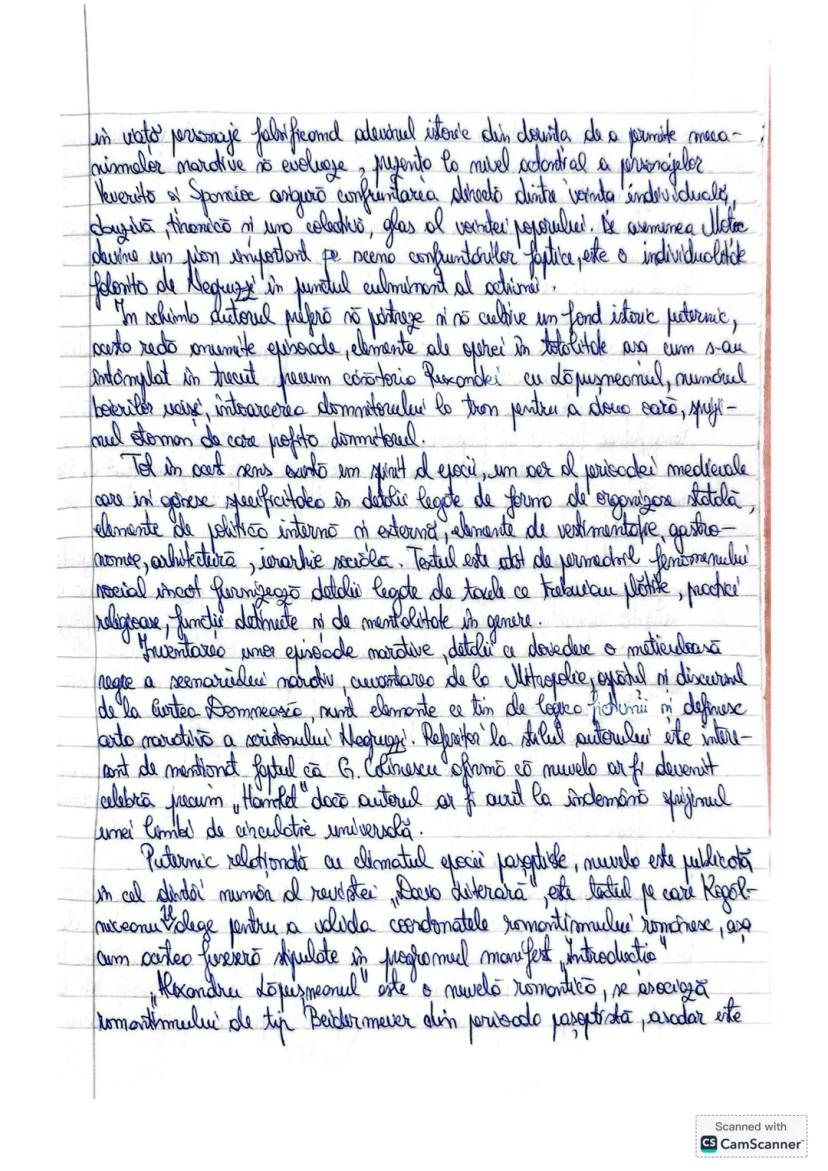 în viață personaje falsificând adevărul istoric din dorința de a permite meca-
nismelor narative să evolueze, prezența la nivel actanțial a personajelor
Veveriță și Spancioc asigură confruntarea directă dintre voința individuală,
abuzivă, tiranică și una colectivă, glas al voinței poporului. De asemenea Moțoc
devine un pion important pe scena confruntărilor faptice, este o individualitate
folosită de Negruzzi în punctul culminant al acțiunii.
În schimb autorul preferă să păstreze și să cultive un fond istoric puternic,
acesta redă anumite episoade, elemente ale operei în totalitate așa cum s-au
întâmplat în trecut precum căsătoria Ruxandei cu Lăpușneanul, numărul
boierilor uciși, întoarcerea domnitorului la tron pentru a doua oară, spriji-
nul otoman de care profită domnitorul.
Tot în acest sens există un spirit al epocii, un aer al perioadei medievale
care își găsesc specificitatea în detalii legate de forma de organizare statală,
elemente de politică internă și externă, elemente de vestimentație, gastro-
nomie, arhitectură, ierarhie socială. Textul este atât de permeabil fenomenului
social încât furnizează detalii legate de taxele ce trebuiau plătite, practici
religioase, funcții deținute și de mentalitate în genere.
Inventarea unor episoade narative, detalii ce dovedesc o meticuloasă
regie a scenariului narativ, cuvântarea de la Mitropolie, ospățul și discursul
de la Curtea Domnească, sunt elemente ce țin de logica ficțiunii și definesc
arta narativă a scriitorului Negruzzi. Referitor la stilul autorului este intere-
sant de menționat faptul că G. Călinescu afirmă că nuvela ar fi devenit
celebră precum „Hamlet" dacă autorul ar fi avut la îndemână sprijinul
unei limbi de circulație universală.
Puternic relaționată cu climatul epocii pașoptiste, nuvela este publicată
în cel dintâi număr al revistei „Dacia Literară", este textul pe care Kogăl-
niceanu îl alege pentru a valida coordonatele romantismului românesc, așa
cum acestea fuseseră stipulate în programul manifest „Introducție"
„Alexandru Lăpușneanul" este o nuvelă romantică, se asociază
romantismului de tip Beidermeyer din perioada pașoptistă, așadar este
Scanned with
CS CamScanner